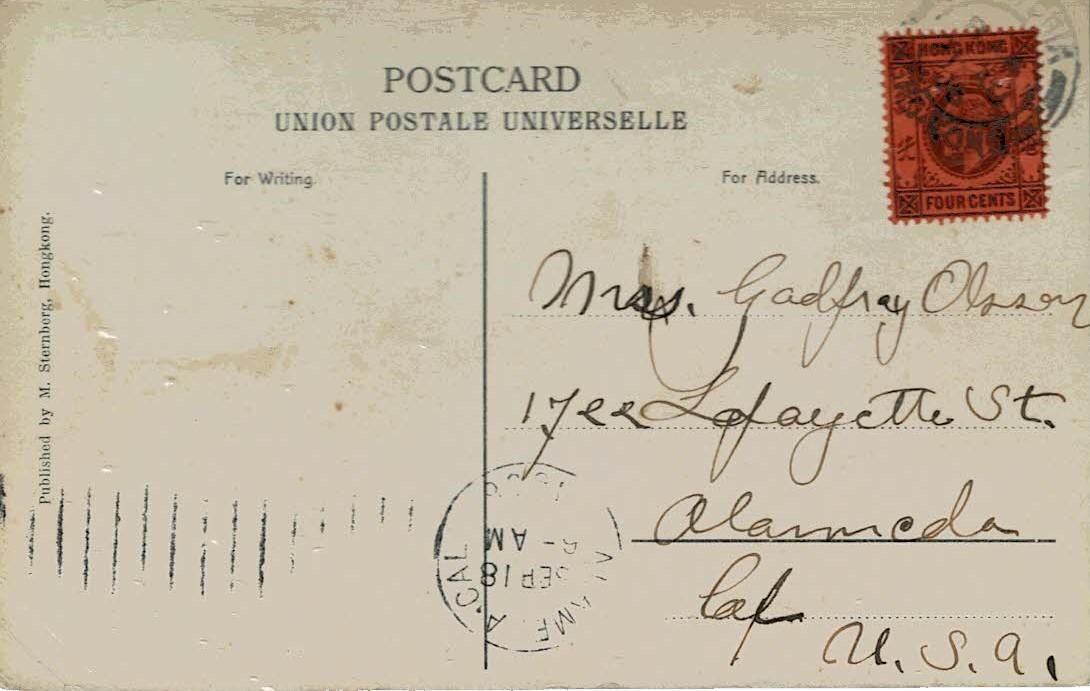 POSTCARD
UNION POSTALE UNIVERSELLE
For Writing.
For Address.
HONG KONG
FOUR CENTS
Published by M. Sternberg, Hongkong.
Mrs. Gadfray Olsson
1722 Lafayette St.
Alameda
Cal
U. S. A.
CAL
SEP 18
AM